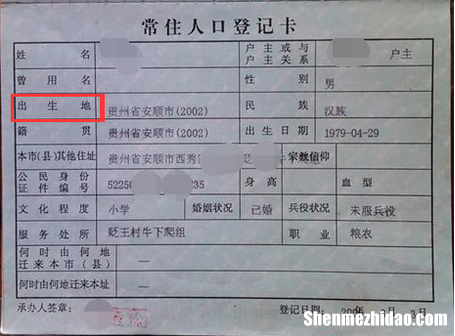 常住人口登记卡
姓名 户主或与户主关系 户主
曾用名 性别 男
出生地 贵州省安顺市(2002) 民族 汉族
籍贯 贵州省安顺市(2002) 出生日期 1979-04-29
本市(县)其他住址 贵州省安顺市西秀 宗教信仰
公民身份证件编号 52250 235 身高 血型
文化程度 小学 婚姻状况 已婚 兵役状况 未服兵役
服务处所 贬王村牛下爬组 职业 粮农
何时由何地迁来本市(县) —
何时由何地迁来本址 —
承办人签章: 登记日期:
Shenmezhidao.com